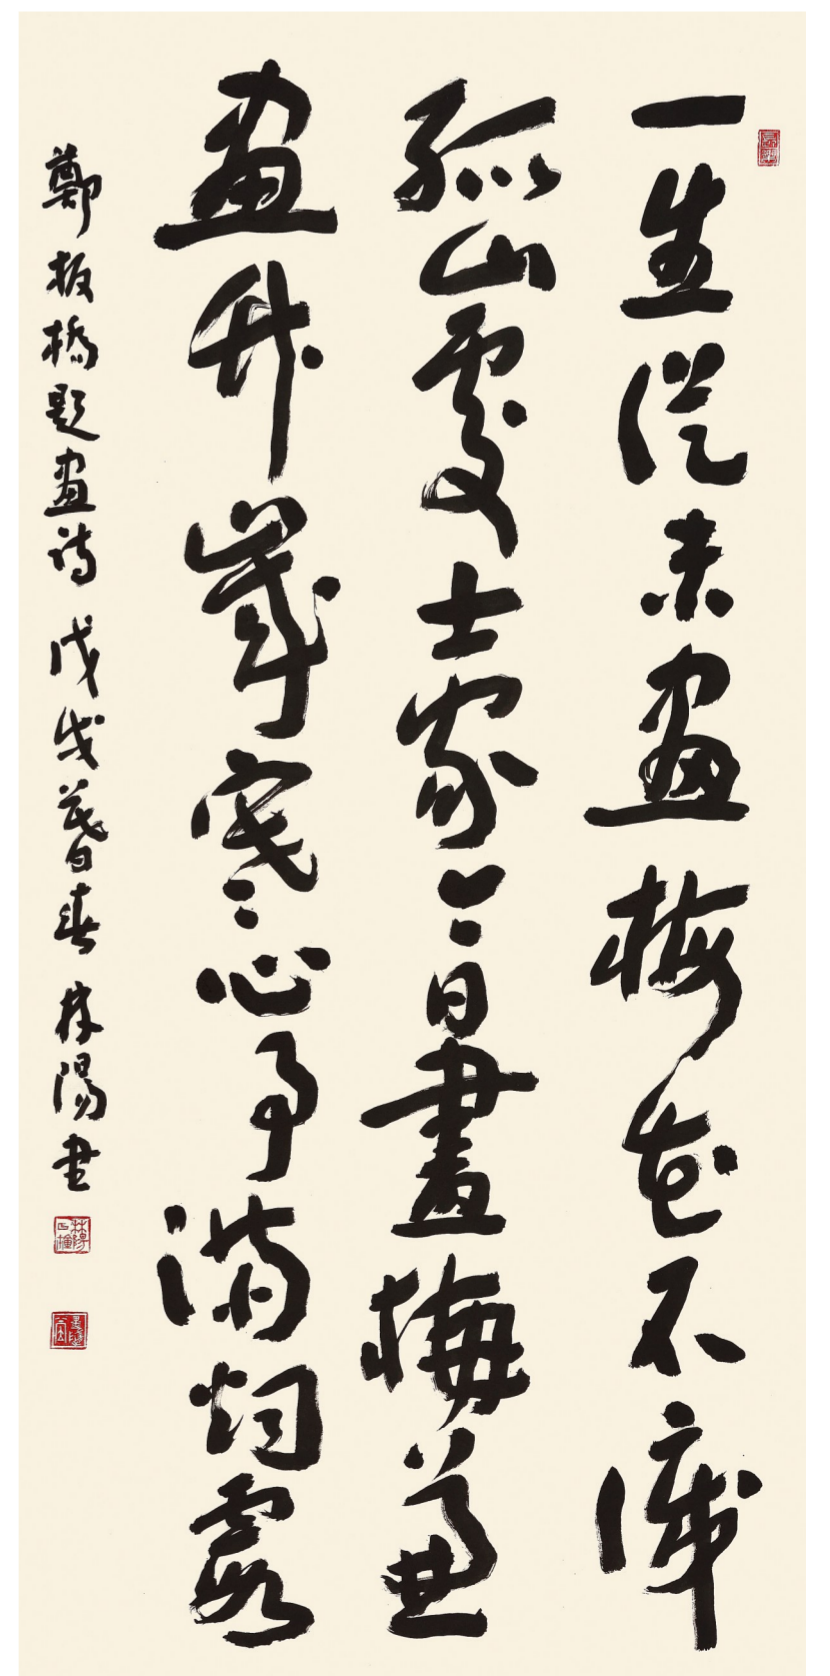 一生從未畫梅花不識
孤山處士家今日畫梅兼
畫竹歲寒心事滿烟霞
鄭板橋題畫詩 戊戌暮春 林陽書